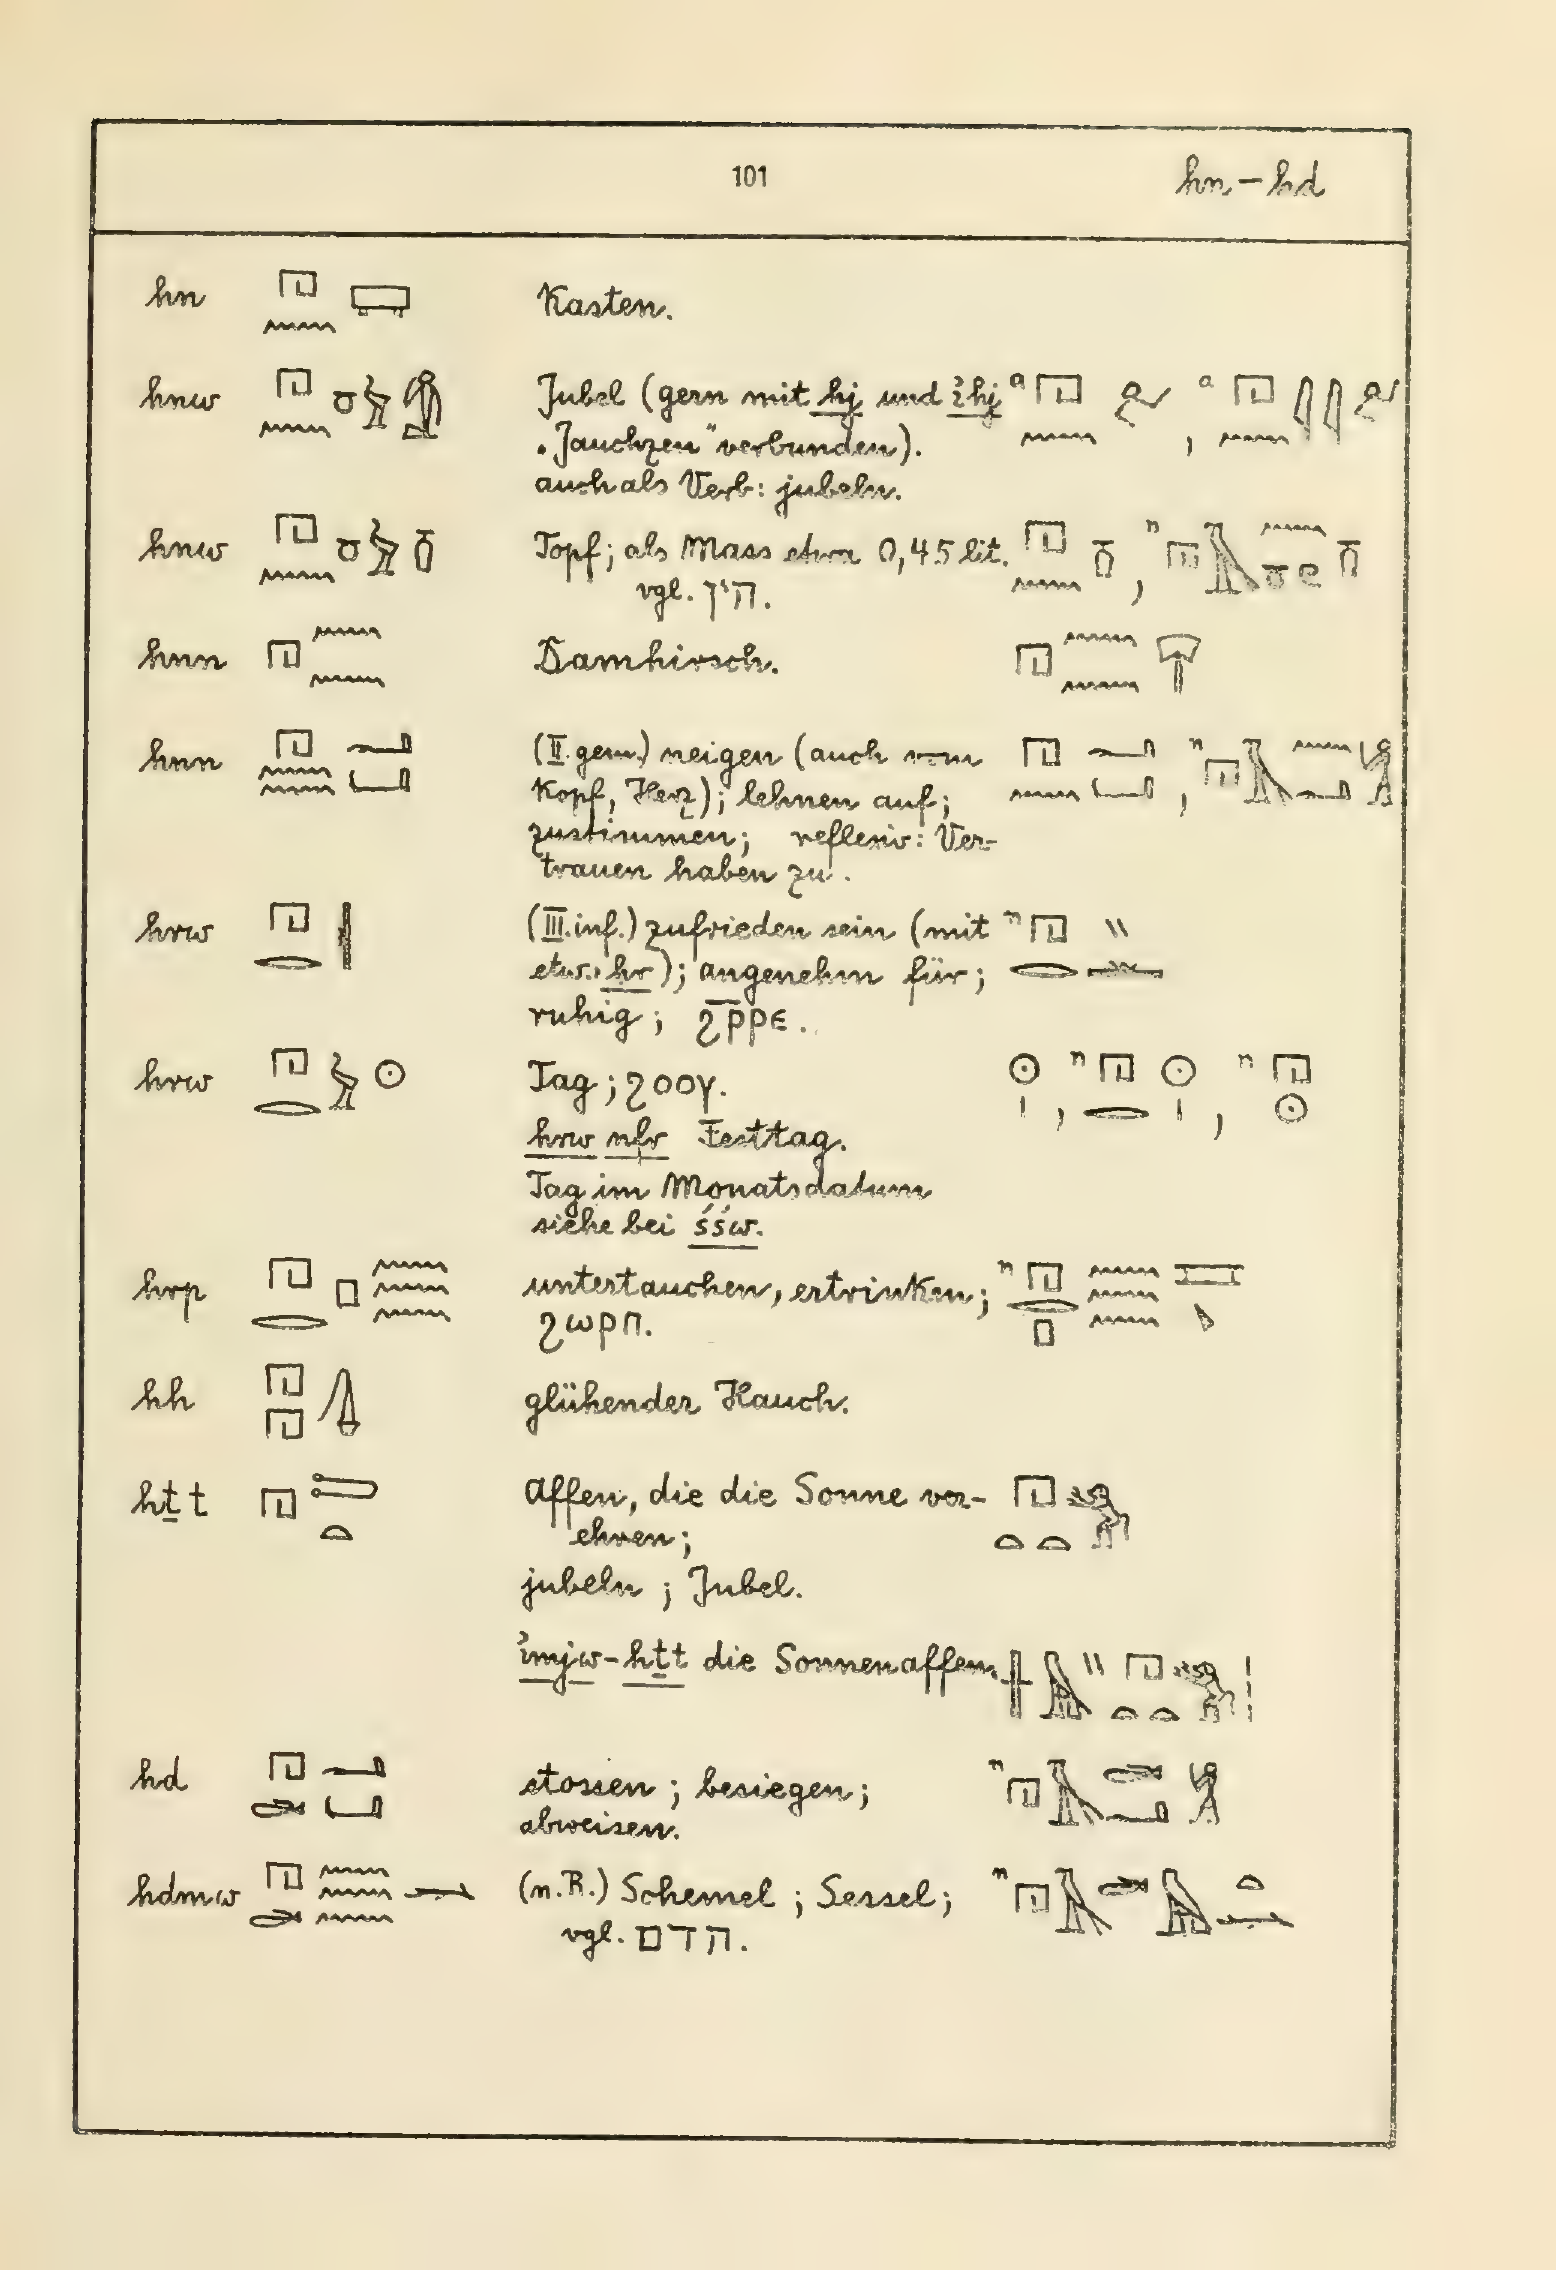 101 hn – hd
hn Kasten.
hnw Jubel (gern mit hj und ꞽhj
„Jauchzen“ verbunden).
auch als Verb: jubeln.
hnw Topf; als Mass etwa 0,45 lit.
vgl. הין.
hnn Damhirsch.
hnn (II. gem.) neigen (auch vom
Kopf, Herz); lehnen auf;
zustimmen; reflexiv: Ver-
trauen haben zu.
hrw (III. inf.) zufrieden sein (mit
etw.: hr); angenehm für;
ruhig; ϩⲣ̅ⲣⲉ.
hrw Tag; ϩⲟⲟⲩ.
hrw nfr Festtag.
Tag im Monatsdatum
siehe bei śśw.
hrp untertauchen, ertrinken;
ϩⲱⲣⲡ.
hh glühender Hauch.
hṯt Affen, die die Sonne ver-
ehren;
jubeln; Jubel.
ꞽmjw-hṯt die Sonnenaffen.
hd stossen; besiegen;
abweisen.
hdmw (n.R.) Schemel; Sessel;
vgl. הדם.